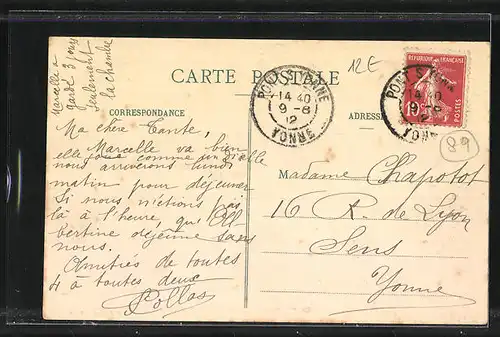 Marcelle a
gardé 3 jours
seulement
la chambre
12E
CARTE POSTALE
CORRESPONDANCE
ADRESSE
PONT S YONNE
14 40
9-8
12
YONNE
REPUBLIQUE FRANÇAISE
POSTES
PONT S YONNE
14 40
9-8
12
YONNE
89
Ma chère Tante,
Marcelle va bien
elle joue comme un diable
nous arriverons lundi
matin pour déjeuner
Si nous n'étions pas
là à l'heure, que
bertine déjeune sans
nous.
Amitiés de toutes
4 à toutes deux
Madame Chapotot
16 R. de Lyon
Sens
Yonne